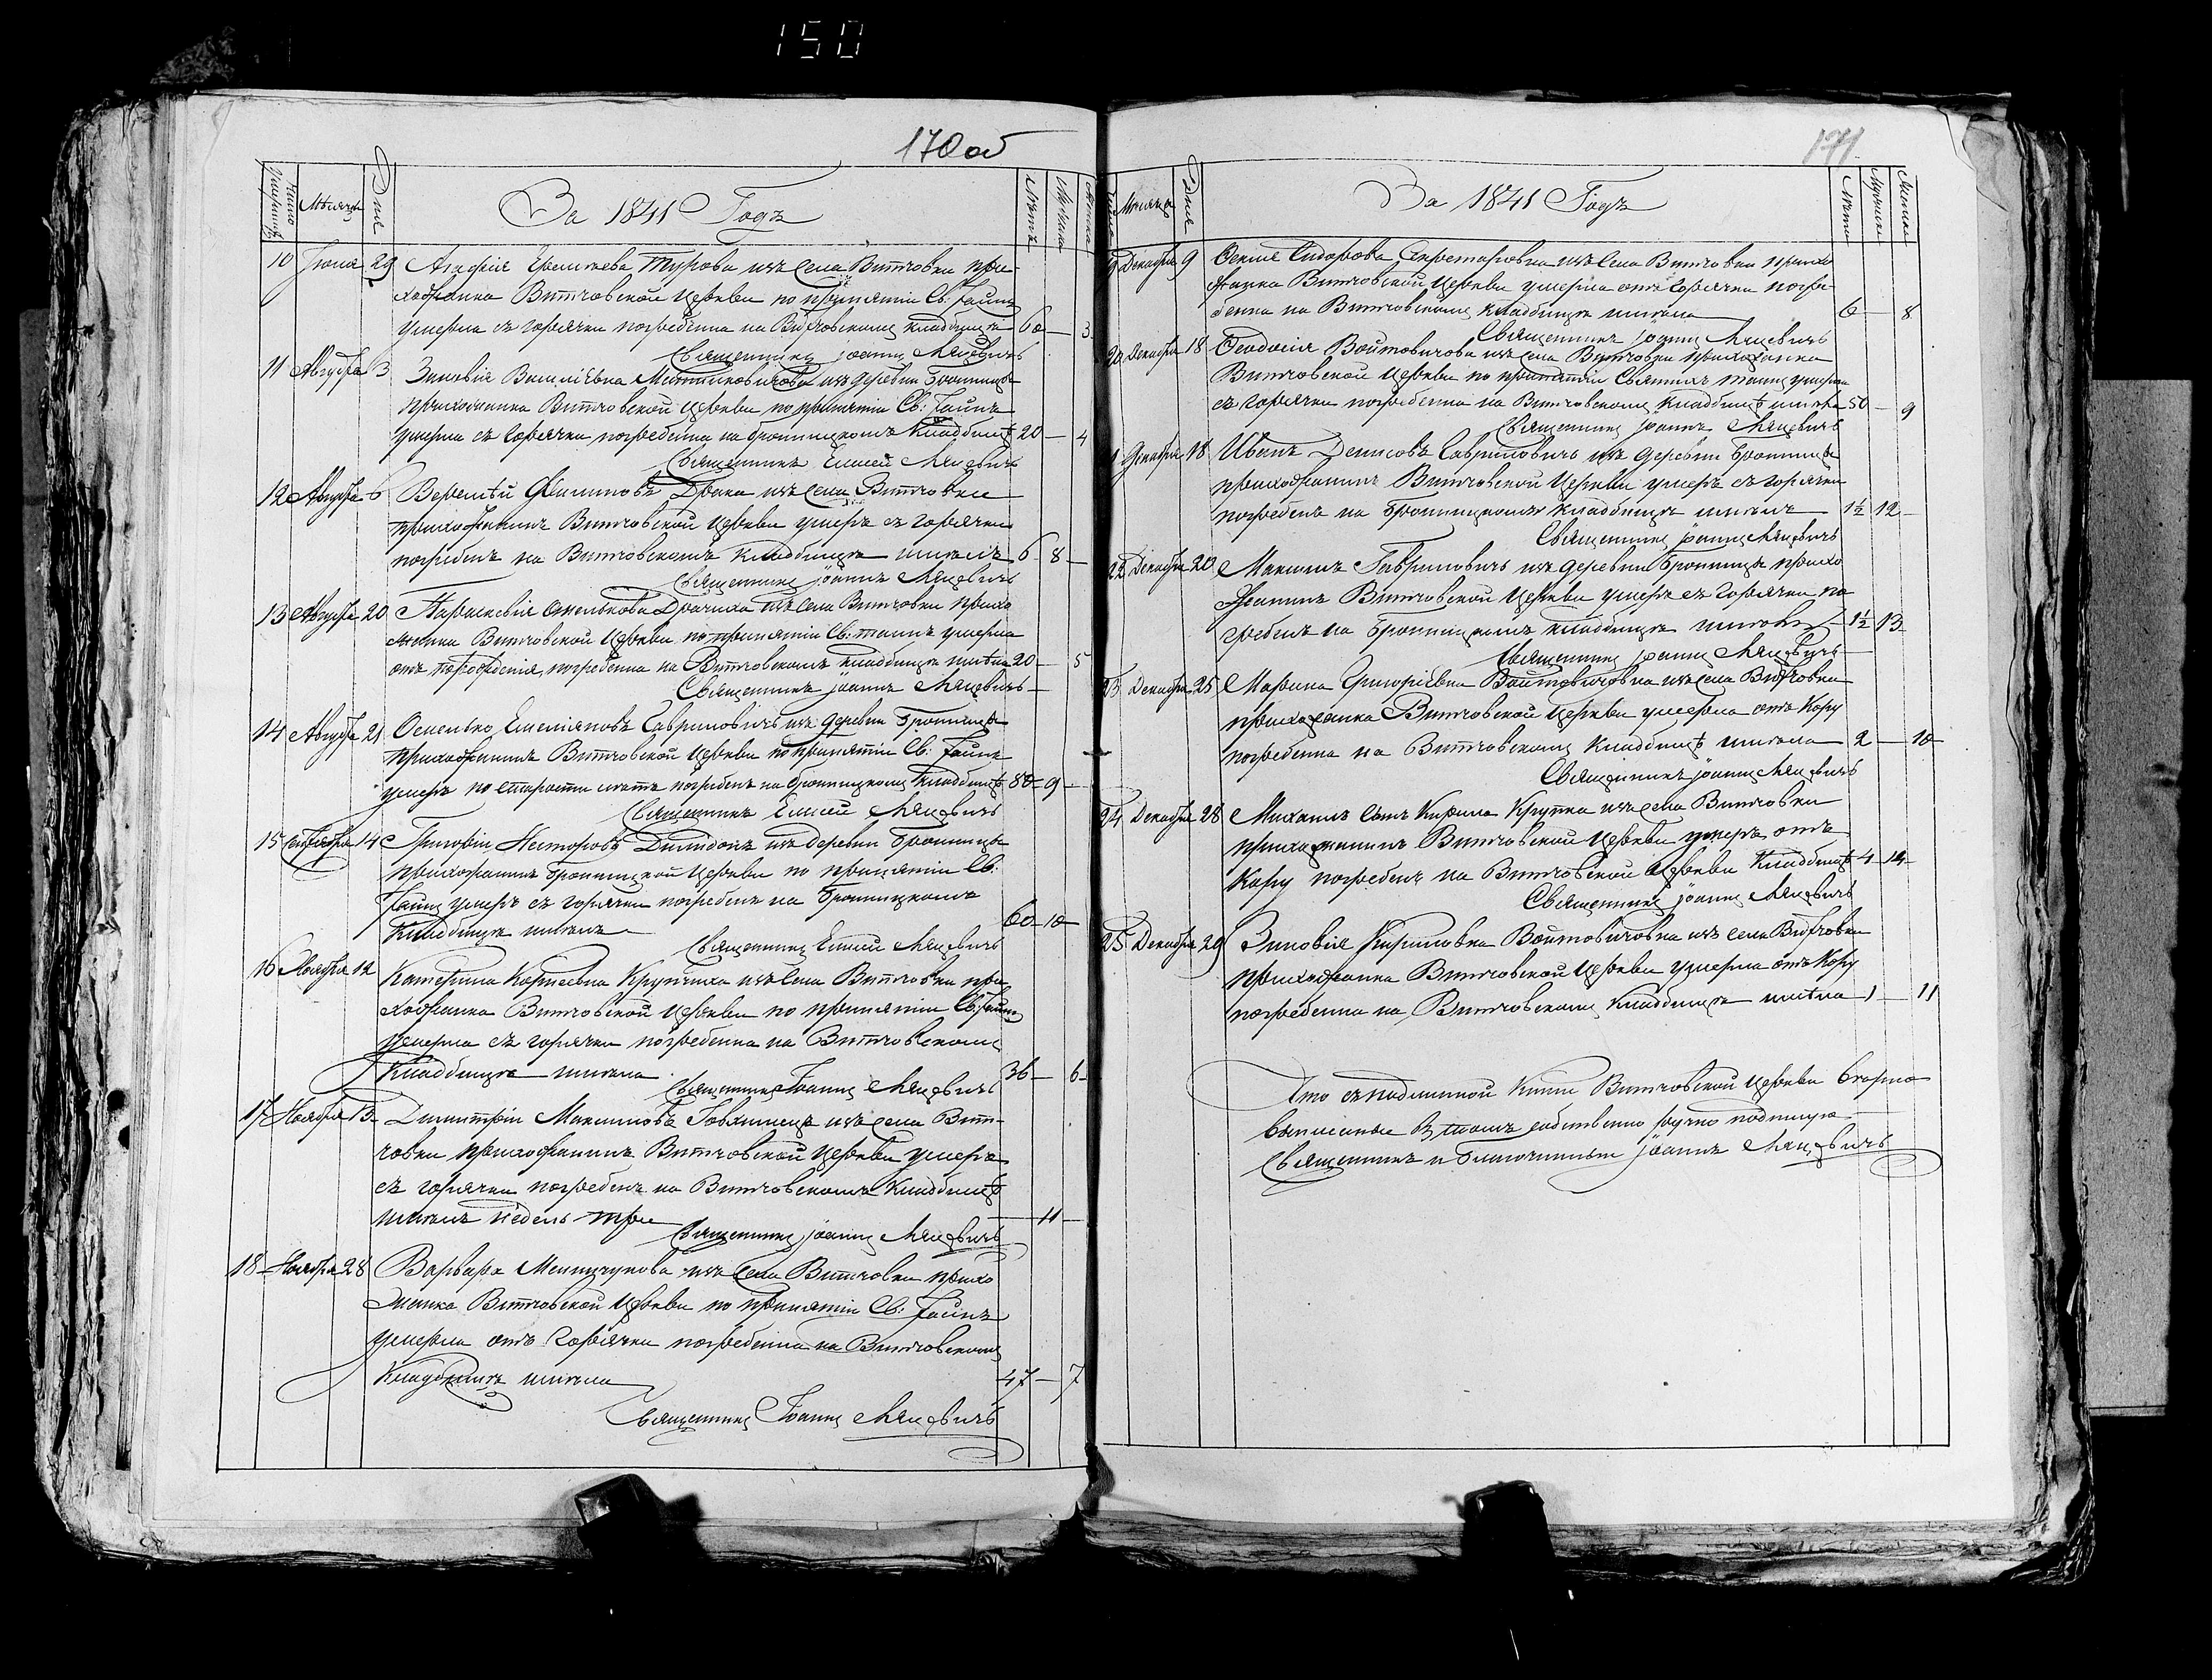 150
170 об
Число Умершихъ
Мѣсяцъ
Дніе
За 1841 Годъ
Лѣта
10 Іюля 29 Агафія Турова изъ Села Витчовки при-
хожанка Витчовской Церкви по принятіи Св: Таинъ
умерла съ горячки погребенна на Витчовскомъ кладбищѣ 60 — 3
Священникъ Іоаннъ Мацевичъ
11 Августа 3 Зиновія Василіевна изъ деревни Бронницы
прихожанка Витчовской Церкви по принятіи Св: Таинъ
умерла съ Горячки погребенна на бронницкомъ Кладбищѣ 20 — 4
Священникъ Елисей Мацевичъ
12 Августа 6 Веремѣй Филиповъ Драка изъ Села Витчовки
прихожанинъ Витчовской Церкви умеръ съ Горячки
погребенъ на Витчовскомъ кладбищѣ имѣлъ 6 — 8 —
Священникъ Іоаннъ Мацевичъ
13 Августа 20 Параскевія Драчиха изъ Села Витчовки прихо
жанка Витчовской Церкви по принятіи Св: таинъ умерла
отъ погребенна на Витчовскомъ кладбищѣ имѣла 20 — 5
Священникъ Іоаннъ Мацевичъ
14 Августа 21 Омелько Емеліановъ Гавриловичъ изъ деревни Бронницы
прихожанинъ Витчовской Церкви по принятіи Св: Таинъ
умеръ по старости погребенъ на бронницкомъ кладбищѣ 80 — 9 —
Священникъ Елисей Мацевичъ
15 Сентября 14 Григорій Несторовъ изъ деревни Бронницы
прихожанинъ Бронницкой Церкви по принятіи Св:
Таинъ умеръ съ горячки погребенъ на Бронницкомъ
Кладбищѣ имѣлъ 60 — 10 —
Священникъ Елисей Мацевичъ
16 Ноября 12 Катерина Крупчиха изъ Села Витчовки при
хожанка Витчовской Церкви по принятіи Св: Таинъ
умерла съ горячки погребенна на Витчовскомъ
Кладбищѣ имѣла 36 — 6 —
Священникъ Іоаннъ Мацевичъ
17 Ноября 13 Димитрій Максимовъ изъ Села Вит-
човки прихожанинъ Витчовской Церкви умеръ
съ горячки погребенъ на Витчовскомъ Кладбищѣ
имѣлъ недель три — 11 —
Священникъ Іоаннъ Мацевичъ
18 Ноября 28 Варвара изъ Села Витчовки прихо
жанка Витчовской Церкви по принятіи Св: Таинъ
умерла отъ Горячки погребенна на Витчовскомъ
Кладбищѣ имѣла 47 — 7
Священникъ Іоаннъ Мацевичъ
171
Мѣсяцъ
Дніе
За 1841 Годъ
Лѣта
Мужеска
Женска
9 Декабря 9 Сидорова изъ Села Витчовки прихо
жанка Витчовской Церкви умерла отъ Горячки погре
бенна на Витчовскомъ Кладбищѣ имѣла 6 — 8
Священникъ Іоаннъ Мацевичъ
20 Декабря 18 Феодосія Войтовичова изъ Села Витчовки прихожанка
Витчовской Церкви по принятіи Святыхъ таинъ умерла
съ Горячки погребенна на Витчовскомъ Кладбищѣ имѣла 50 — 9
Священникъ Іоаннъ Мацевичъ
1 Декабря 18 Иванъ Денисовъ Гавриловичъ изъ деревни Бронницы
прихожанинъ Витчовской Церкви умеръ съ горячки
погребенъ на Бронницкомъ кладбищѣ имѣлъ 1½ 12 —
Священникъ Іоаннъ Мацевичъ
22 Декабря 20 Максимъ Гавриловичъ изъ деревни Бронницы прихо
жанинъ Витчовской Церкви умеръ съ Горячки по
гребенъ на Бронницкомъ кладбищѣ имѣлъ 1½ 13
Священникъ Іоаннъ Мацевичъ
23 Декабря 25 Марина Григоріевна Войтовичовна изъ Села Витчовки
прихожанка Витчовской Церкви умерла отъ Кору
погребенна на Витчовскомъ Кладбищѣ имѣла 2 — 10
Священникъ Іоаннъ Мацевичъ
24 Декабря 28 Михаилъ Сынъ Кирила Крупка изъ Села Витчовки
прихожанинъ Витчовской Церкви умеръ отъ
Кору погребенъ на Витчовской Церкви Кладбищѣ 4 — 14
Священникъ Іоаннъ Мацевичъ
25 Декабря 29 Зиновія Кириловна Войтовичовна изъ Села Витчовки
прихожанка Витчовской Церкви умерла отъ Кору
погребенна на Витчовскомъ Кладбищѣ имѣла 1 — 11
Что съ подлинной Книги Витчовской Церкви
выписаны въ томъ собственно ручно подпишуся
Священникъ и Благочинный Іоаннъ Мацевичъ